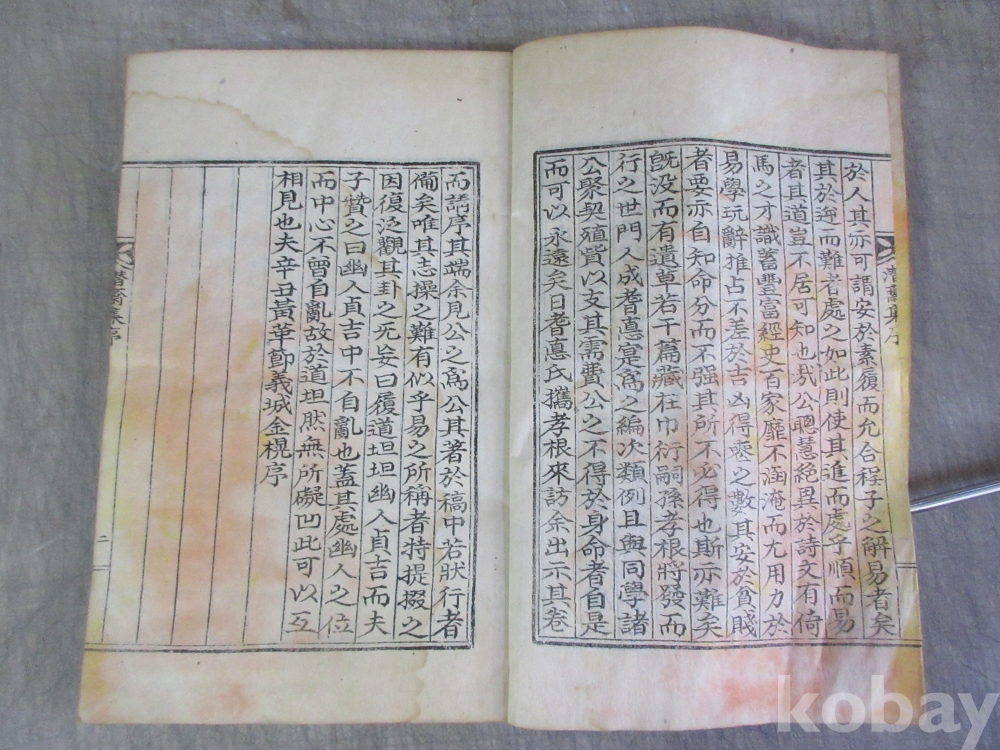 於人其亦可謂安於素履而允合程子之解易者矣
其於迎而難者處之如此則使其進而處乎順而易
者其道豈不居可知也哉公聰慧絕異於詩文有倚
馬之才識蓄豐富經史百家靡不涵淹而尤用力於
易學玩辭推占不差於吉凶得喪之數其安於貧賤
者要亦自知命分而不强其所不必得也斯亦難矣
旣没而有遺草若干篇藏在巾衍嗣孫孝根將發而
行之世門人成耆悳寔爲之編次類例且與同學諸
公聚契殖貲以支其需費公之不得於身命者自是
而可以永遠矣日耆悳氏攜孝根來訪余出示其卷
潛齋集序
而請序其端余見公之爲公其著於稿中若狀行者
備矣唯其志操之難有似乎易之所稱者特提掇之
因復泛觀其卦之旡妄曰履道坦坦幽人貞吉而夫
子贊之曰幽人貞吉中不自亂也蓋其處幽人之位
而中心不曾自亂故於道坦然無所礙凹此可以互
相見也夫辛丑黃華節義城金榥序
潛齋集序
二
kobay